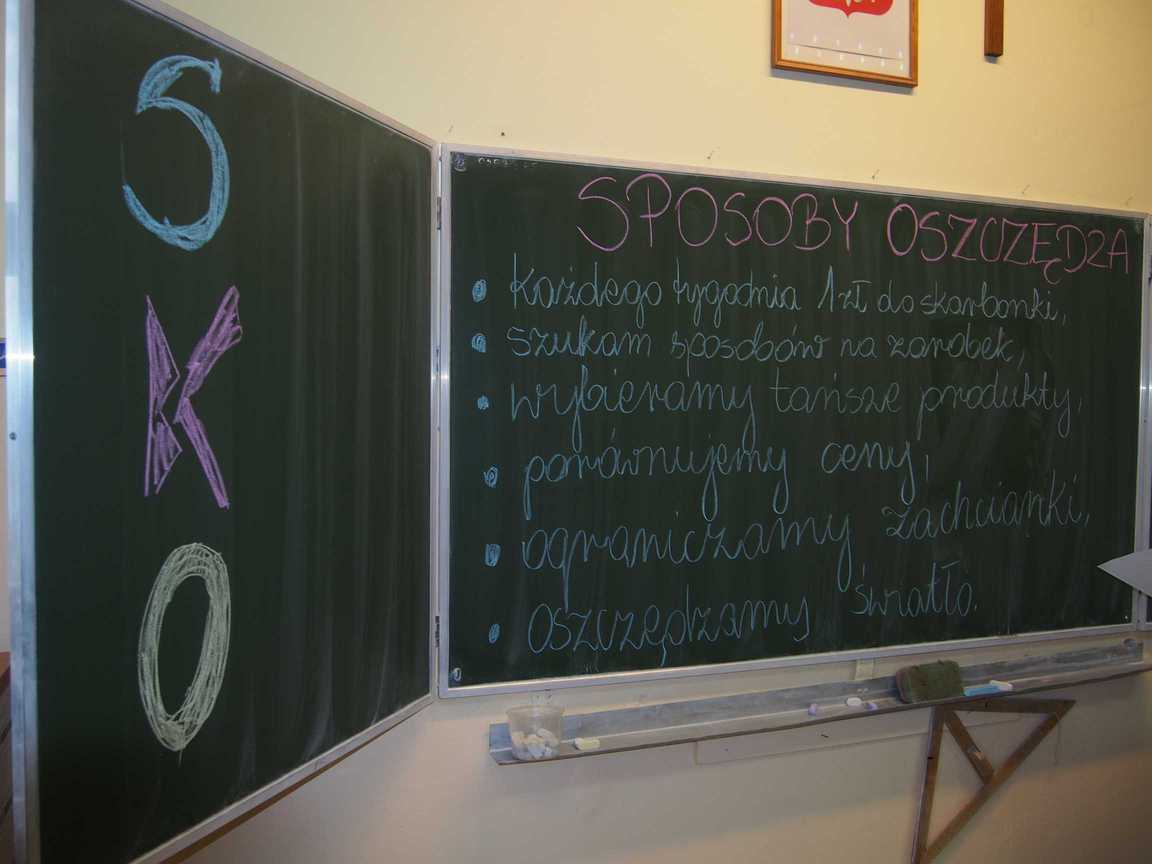 S
K
O
SPOSOBY OSZCZĘDZA
każdego tygodnia 1 zł do skarbonki,
szukam sposobów na zarobek,
wybieramy tańsze produkty,
porównujemy ceny,
ograniczamy zachcianki,
oszczędzamy światło.